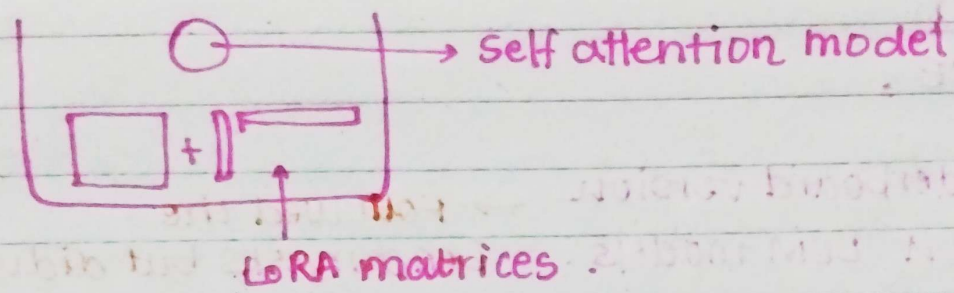 self attention model
+
LoRA matrices .